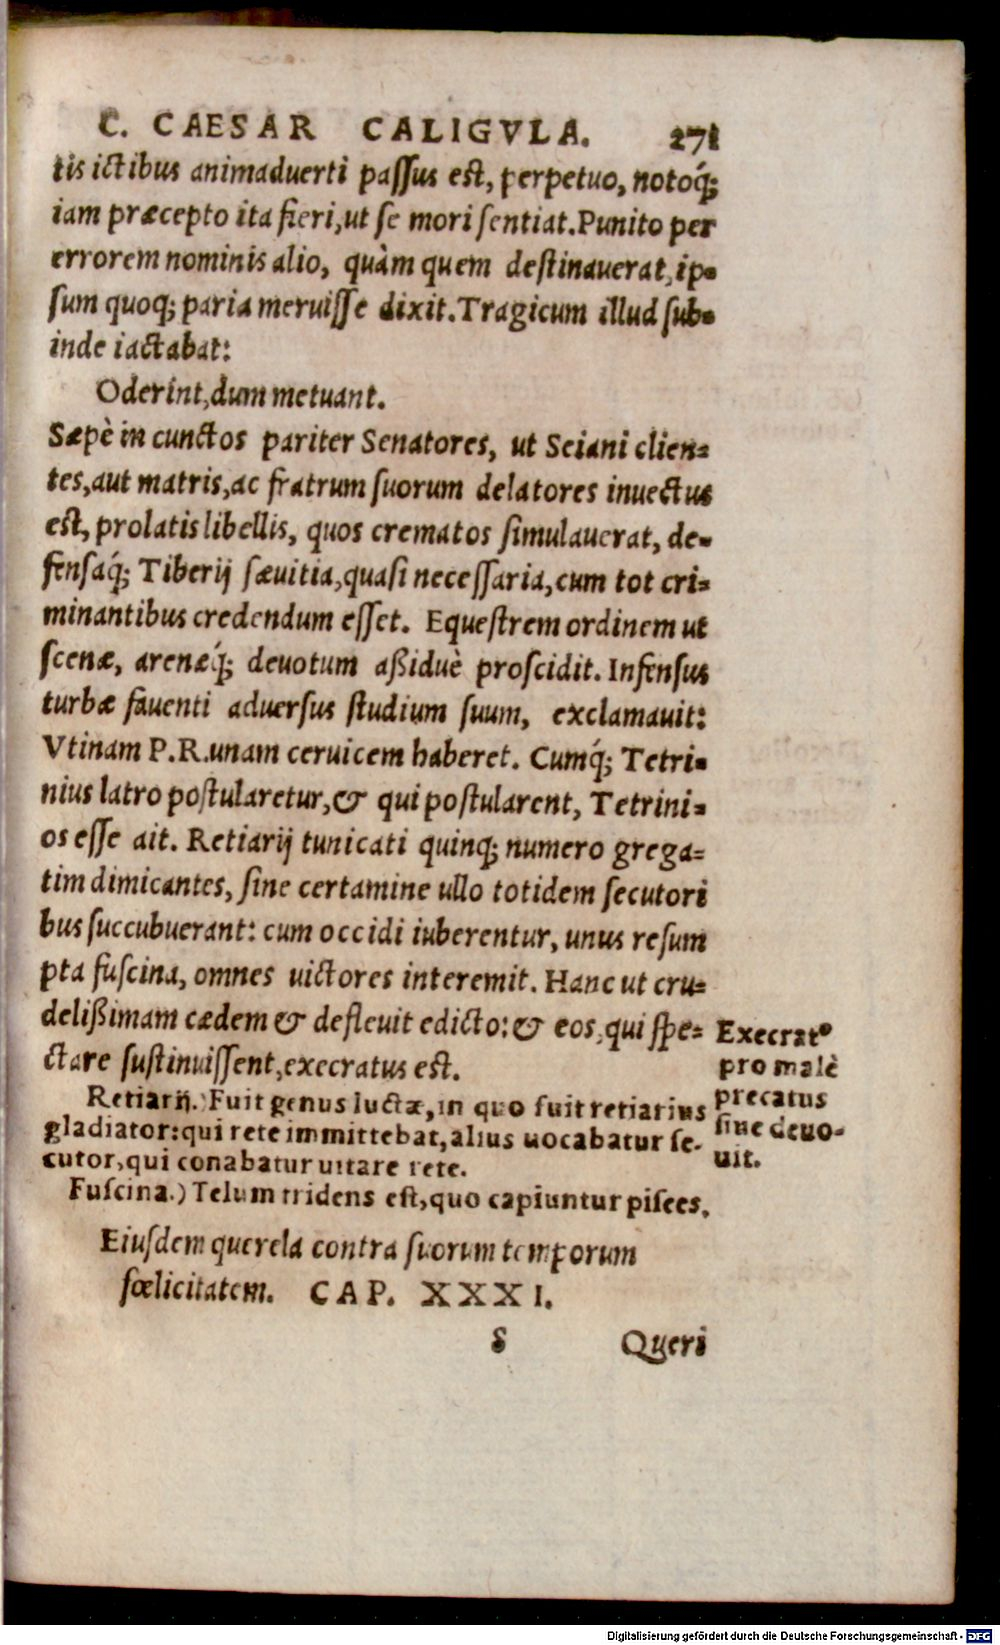 C. CAESAR CALIGVLA. 271
tis ictibus animaduerti passus est, perpetuo, notoq́;
iam præcepto ita fieri, ut se mori sentiat. Punito per
errorem nominis alio, quàm quem destinauerat, ip-
sum quoq; paria meruisse dixit. Tragicum illud sub-
inde iactabat:
Oderint, dum metuant.
Sæpè in cunctos pariter Senatores, ut Seiani clien-
tes, aut matris, ac fratrum suorum delatores inuectus
est, prolatis libellis, quos crematos simulauerat, de-
fensaq́; Tiberij sæuitia, quasi necessaria, cum tot cri-
minantibus credendum esset. Equestrem ordinem ut
scenæ, arenæq́; deuotum aßiduè proscidit. Infensus
turbæ fauenti aduersus studium suum, exclamauit:
Vtinam P.R. unam ceruicem haberet. Cumq́; Tetri-
nius latro postularetur, & qui postularent, Tetrini-
os esse ait. Retiarij tunicati quinq; numero grega-
tim dimicantes, sine certamine ullo totidem secutori
bus succubuerant: cum occidi iuberentur, unus resum
pta fuscina, omnes uictores interemit. Hanc ut cru-
delißimam cædem & defleuit edicto: & eos, qui spe-
ctare sustinuissent, execratus est.
Execrat⁹
pro malè
precatus
siue deuo-
uit.
Retiarij.) Fuit genus luctæ, in quo fuit retiarius
gladiator: qui rete immittebat, alius uocabatur se-
cutor, qui conabatur uitare rete.
Fuscina.) Telum tridens est, quo capiuntur pisces.
Eiusdem querela contra suorum temporum
fœlicitatem. CAP. XXXI.
S Queri
Digitalisierung gefördert durch die Deutsche Forschungsgemeinschaft - DFG